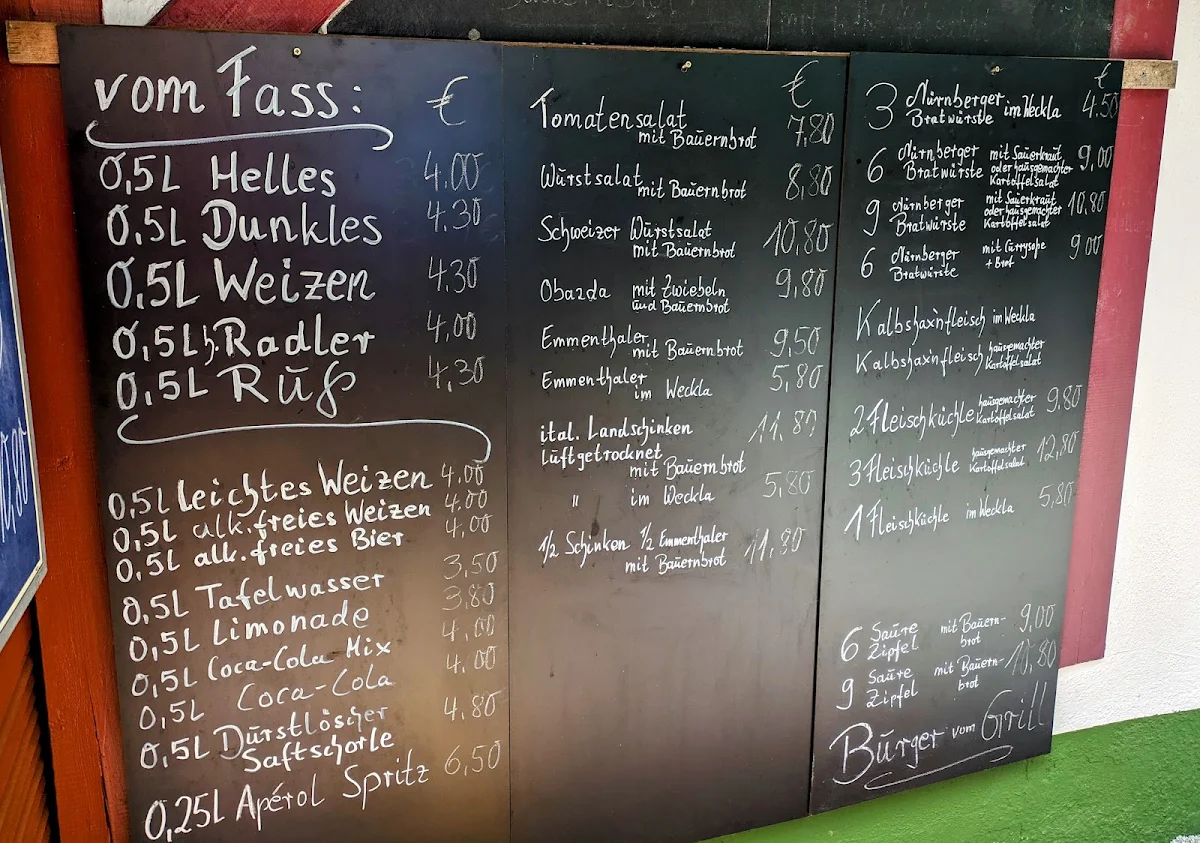 vom Fass: €
0,5L Helles 4.00
0,5L Dunkles 4.30
0,5L Weizen 4.30
0,5L h. Radler 4,00
0,5L Ruß 4,30
0,5L leichtes Weizen 4.00
0,5L alk.freies Weizen 4.00
0,5L alk.freies Bier 4,00
0,5L Tafelwasser 3,50
0,5L Limonade 3,80
0,5L Coca-Cola Mix 4.00
0,5L Coca-Cola 4.00
0,5L Durstlöscher 4.80
Saftschorle
0,25L Apérol Spritz 6,50
€
Tomatensalat 7,80
mit Bauernbrot
Wurstsalat mit Bauernbrot 8,80
Schweizer Wurstsalat 10,80
mit Bauernbrot
Obazda mit Zwiebeln 9,80
und Bauernbrot
Emmenthaler mit Bauernbrot 9,50
Emmenthaler im Weckla 5,80
ital. Landschinken 11.80
luftgetrocknet
mit Bauernbrot
" im Weckla 5,80
1/2 Schinken 1/2 Emmenthaler 11.80
mit Bauernbrot
€
3 Nürnberger Bratwürste im Weckla 4.50
6 Nürnberger Bratwürste mit Sauerkraut oder hausgemachter Kartoffelsalat 9,00
9 Nürnberger Bratwürste mit Sauerkraut oder hausgemachter Kartoffelsalat 10,80
6 Nürnberger Bratwürste mit Currysoße + Brot 9,00
Kalbshax'nfleisch im Weckla
Kalbshaxnfleisch hausgemachter Kartoffelsalat
2 Fleischküchle hausgemachter Kartoffelsalat 9.80
3 Fleischküchle hausgemachter Kartoffelsalat 12,80
1 Fleischküchle im Weckla 5,80
6 Saure Zipfel mit Bauern-brot 9,00
9 Saure Zipfel mit Bauern-brot 10,80
Burger vom Grill